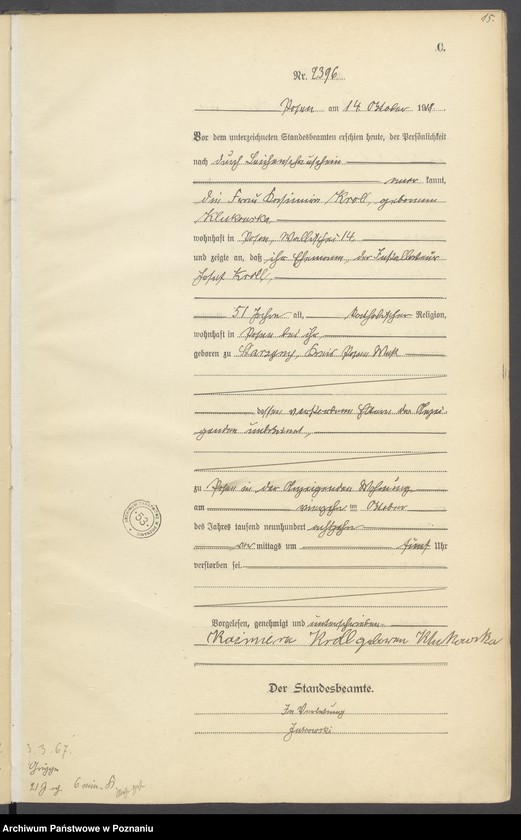 15.
C.
Nr. 2396
Posen am 14 Oktober 1918.
Vor dem unterzeichneten Standesbeamten erschien heute, der Persönlichkeit
nach durch Leichenschauschein
kannt,
die Frau Kasimira Kroll, geborene
Klukowska,
wohnhaft in Posen, Wallischei 14
und zeigte an, daß ihr Ehemann, der Installateur
Josef Kroll,
51 Jahre alt, katholischer Religion,
wohnhaft in Posen bei ihr
geboren zu Kreis Posen West
dessen verstorbene Eltern der Anzei-
genden unbekannt,
zu Posen in der Anzeigenden Wohnung
am vierzehn ten Oktober
des Jahres tausend neunhundert achtzehn
vor mittags um fünf Uhr
verstorben sei.
Vorgelesen, genehmigt und unterschrieben
Kazimiera Kroll geboren Klukowska
Der Standesbeamte.
In Vertretung
3.3.67.
Archiwum Państwowe w Poznaniu